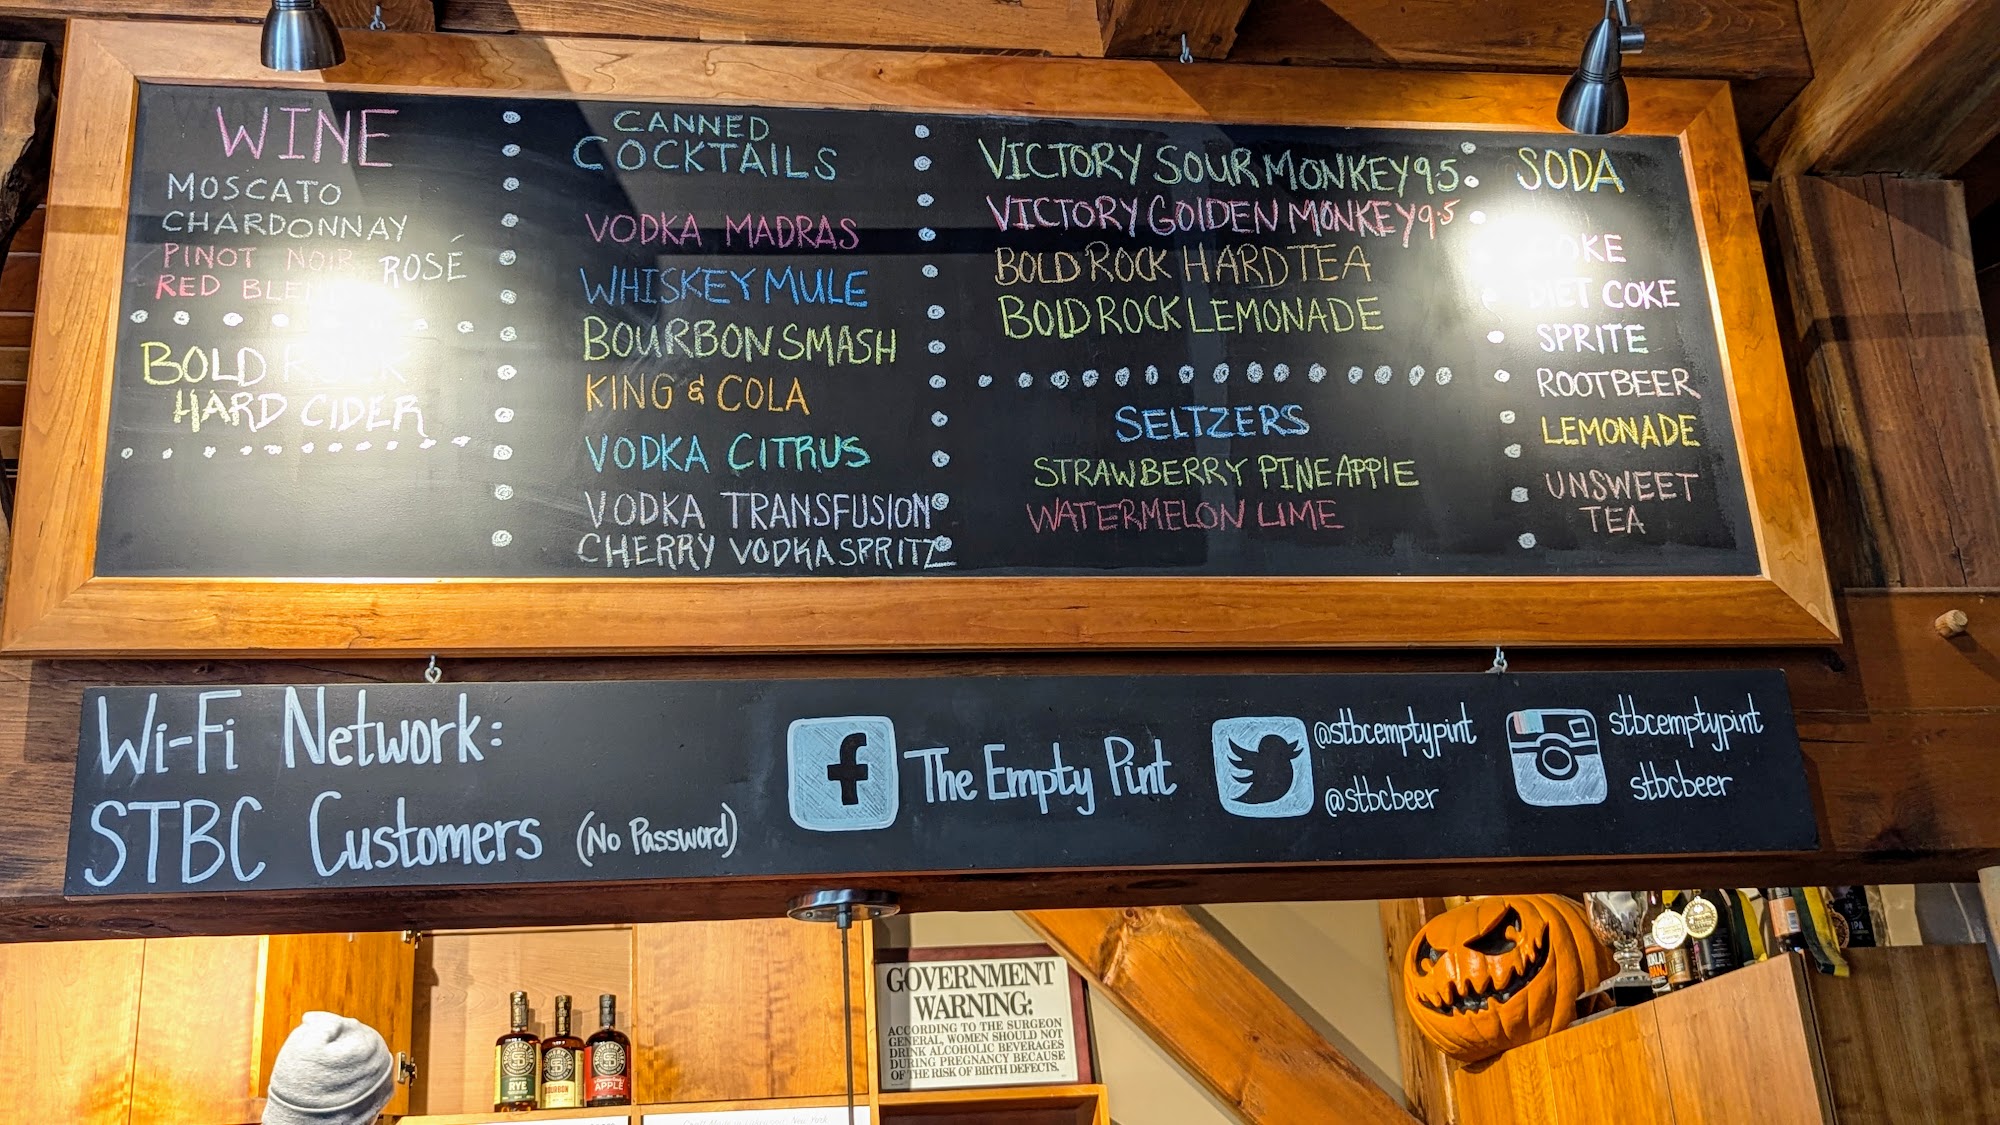 WINE
MOSCATO
CHARDONNAY
PINOT NOIR
ROSÉ
RED BLEND
BOLD ROCK
HARD CIDER
CANNED
COCKTAILS
VODKA MADRAS
WHISKEY MULE
BOURBON SMASH
KING & COLA
VODKA CITRUS
VODKA TRANSFUSION
CHERRY VODKA SPRITZ
VICTORY SOUR MONKEY 9.5
VICTORY GOLDEN MONKEY 9.5
BOLD ROCK HARD TEA
BOLD ROCK LEMONADE
SELTZERS
STRAWBERRY PINEAPPLE
WATERMELON LIME
SODA
COKE
DIET COKE
SPRITE
ROOTBEER
LEMONADE
UNSWEET
TEA
Wi-Fi Network:
STBC Customers (No Password)
f The Empty Pint
@stbcemptypint
@stbcbeer
stbcemptypint
stbcbeer
GOVERNMENT
WARNING:
ACCORDING TO THE SURGEON
GENERAL, WOMEN SHOULD NOT
DRINK ALCOHOLIC BEVERAGES
DURING PREGNANCY BECAUSE
OF THE RISK OF BIRTH DEFECTS.
RYE
BOURBON
APPLE
IPA